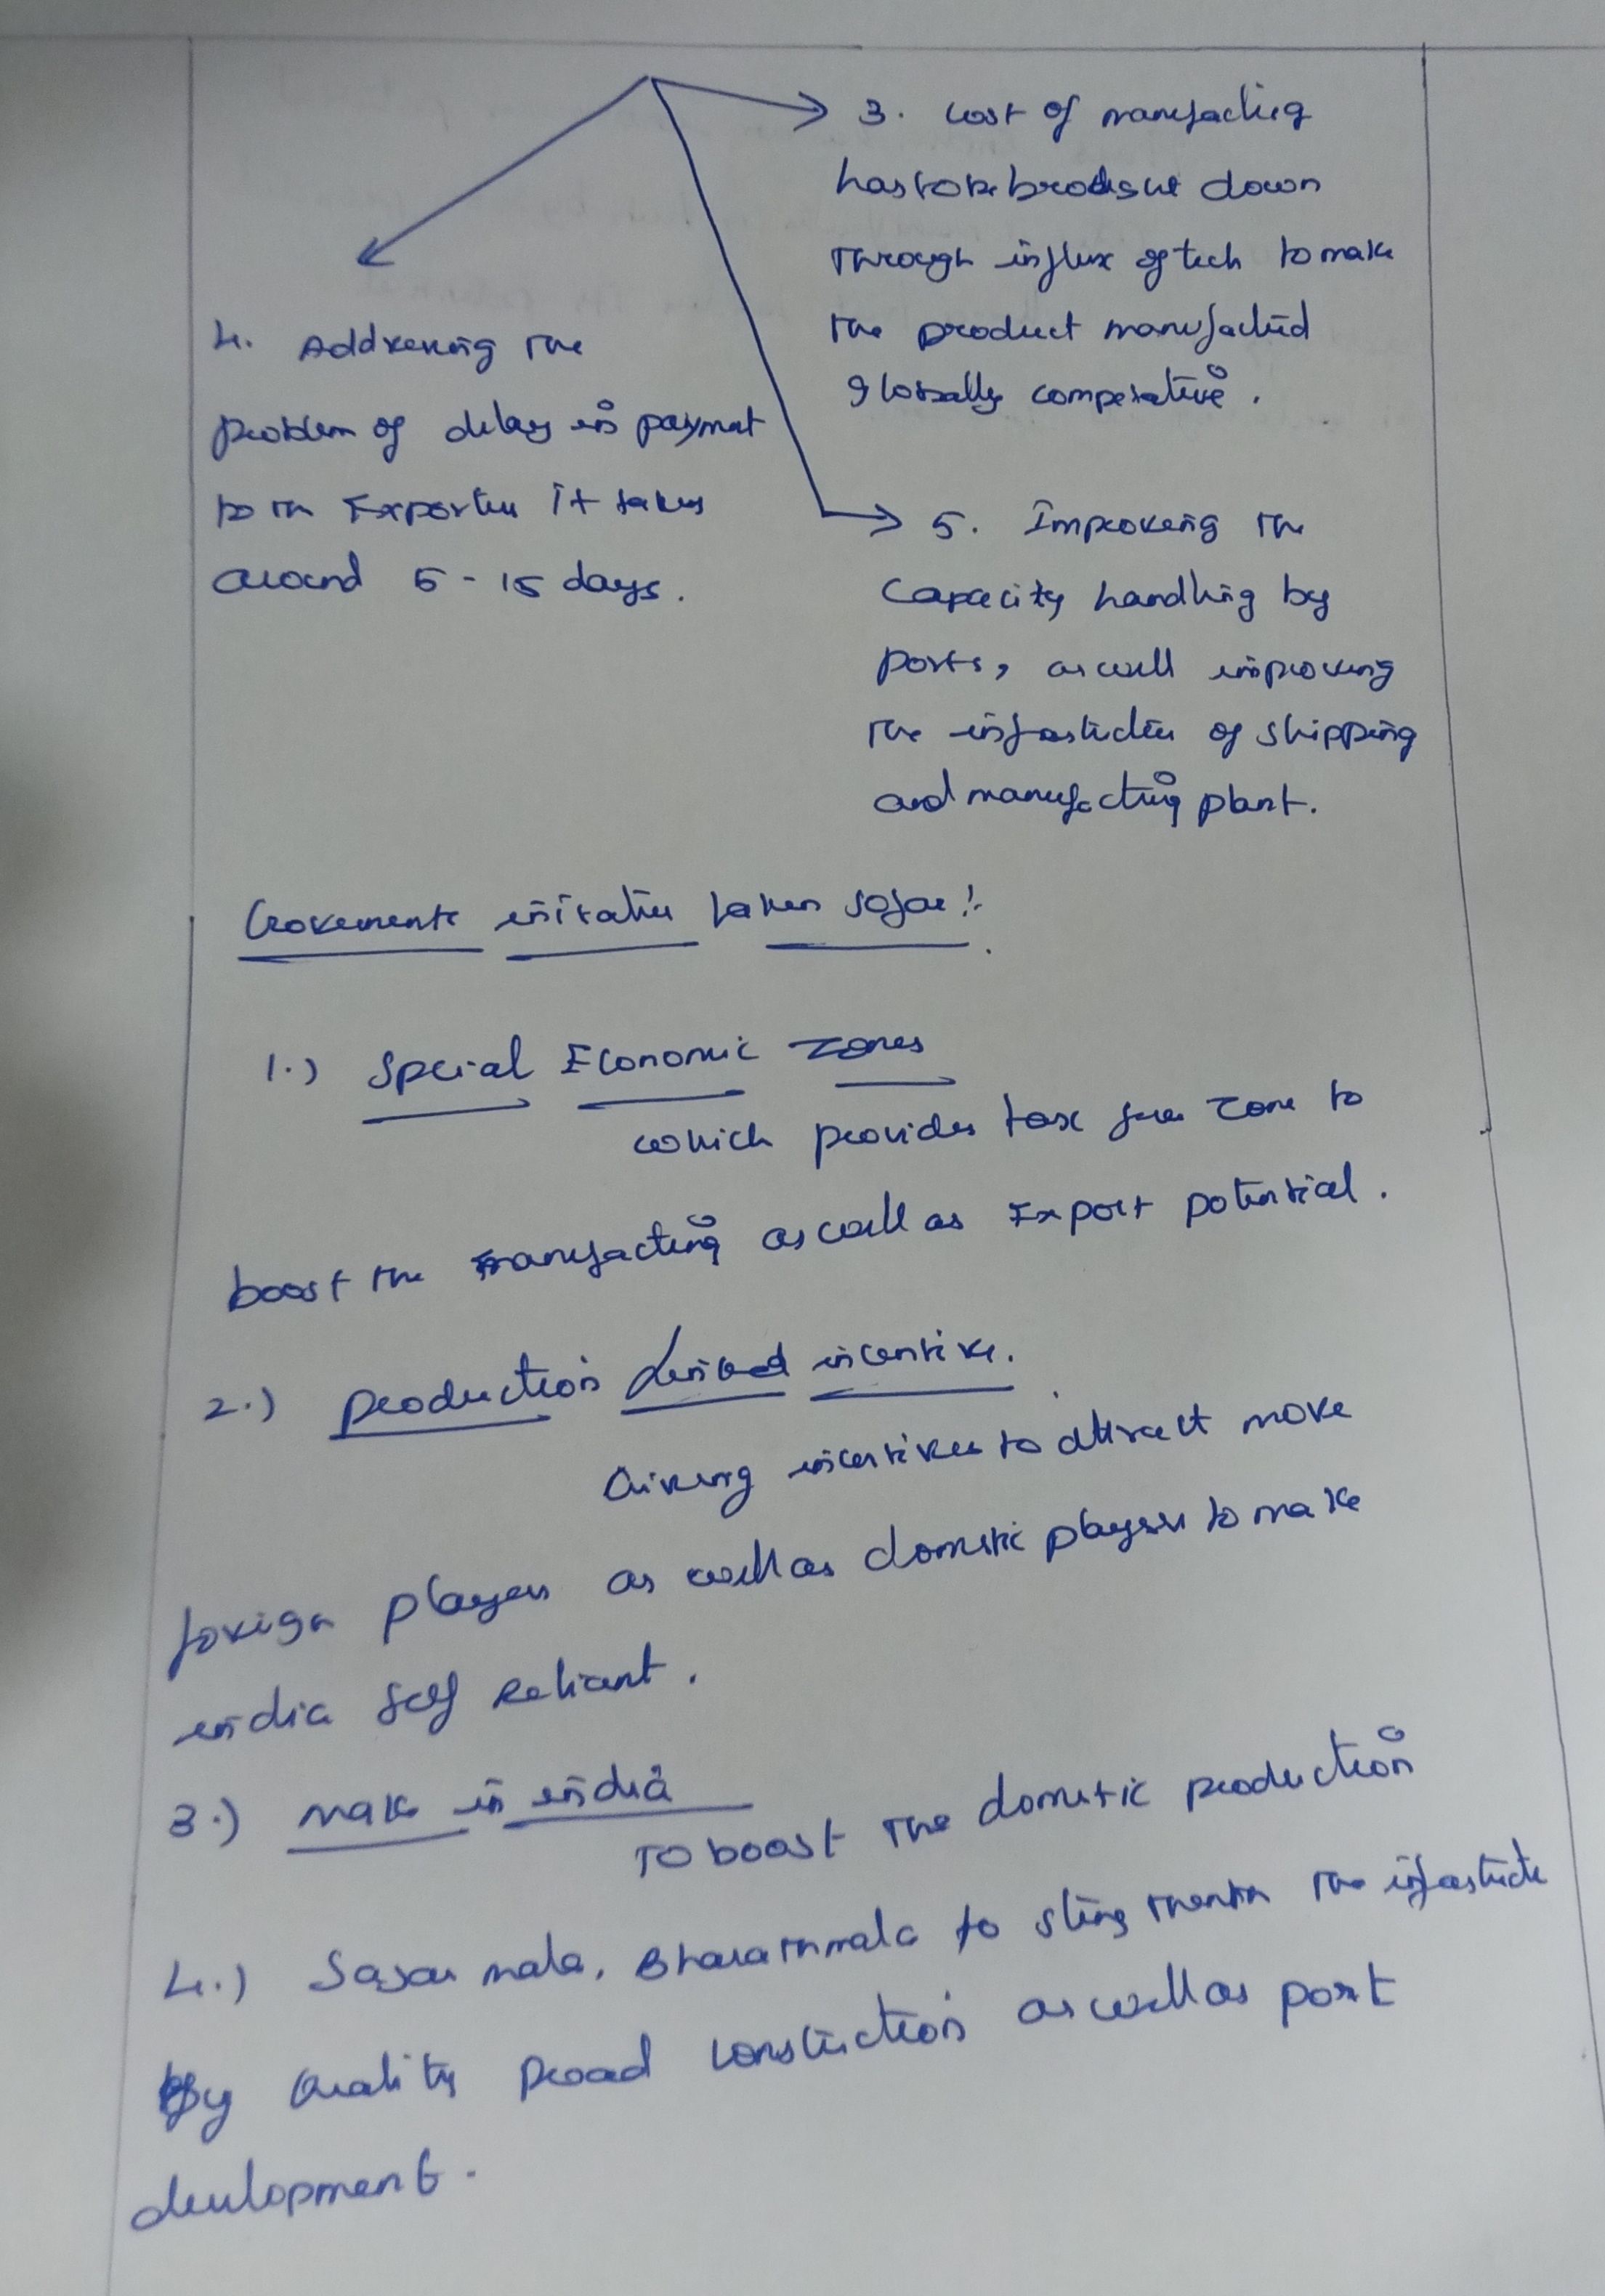 3. Cost of manufacting
has to be brought down
through influx of tech to make
the product manufactured
globally competative.
4. Addressing the
problem of delay in payment
to the Exporter it takes
around 5-15 days.
5. Improving the
Capacity handling by
ports, as well improving
the infrastructure of shipping
and manufacturing plant.
Governments initiative taken so far:
1.) Special Economic Zones
which provides tax free zone to
boost the manufacturing as well as Export potential.
2.) production incentive.
Giving incentives to attract more
foreign players as well as domestic players to make
india Self Reliant.
3.) Make in india
To boost the domestic production
4.) Sagar mala, Bharathmala to strengthen the infrastructure
By Quality road construction as well as port
development.